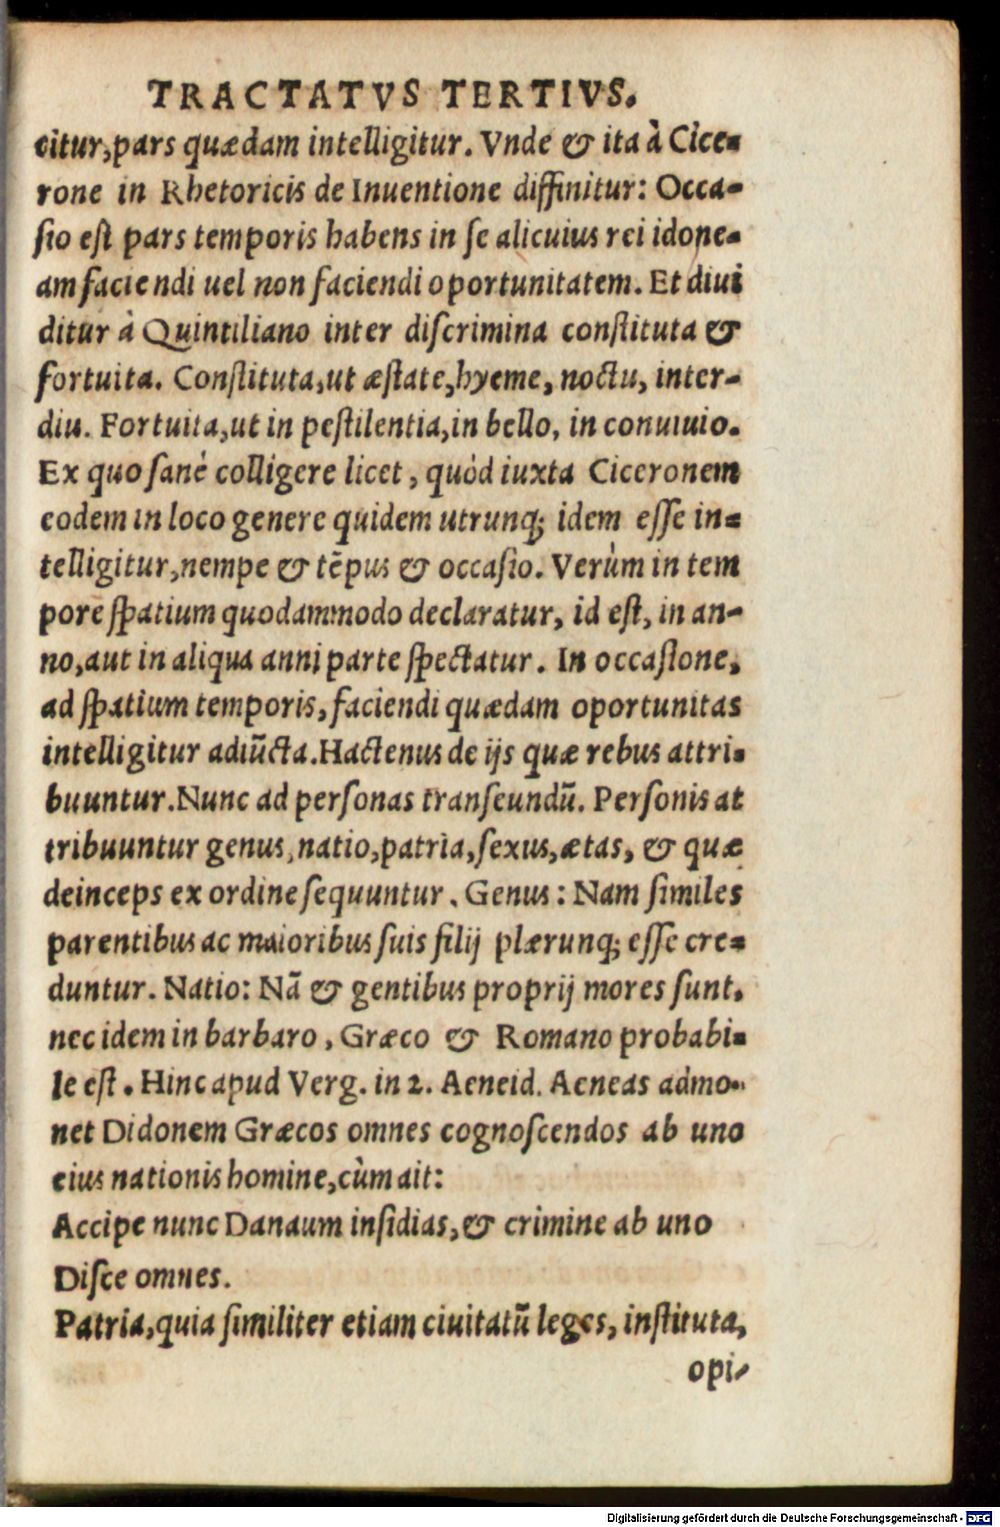 TRACTATVS TERTIVS.
citur, pars quædam intelligitur. Vnde & ita à Cice-
rone in Rhetoricis de Inuentione diffinitur: Occa-
ſio eſt pars temporis habens in ſe alicuius rei idone-
am faciendi uel non faciendi oportunitatem. Et diui
ditur à Quintiliano inter diſcrimina conſtituta &
fortuita. Conſtituta, ut æſtate, hyeme, noctu, inter-
diu. Fortuita, ut in peſtilentia, in bello, in conuiuio.
Ex quo ſanè colligere licet, quòd iuxta Ciceronem
eodem in loco genere quidem utrunq; idem eſſe in-
telligitur, nempe & tẽpus & occaſio. Verùm in tem
pore ſpatium quodammodo declaratur, id eſt, in an-
no, aut in aliqua anni parte ſpectatur. In occaſione,
ad ſpatium temporis, faciendi quædam oportunitas
intelligitur adiũcta. Hactenus de ijs quæ rebus attri-
buuntur. Nunc ad perſonas tranſeundũ. Perſonis at
tribuuntur genus, natio, patria, ſexus, ætas, & quæ
deinceps ex ordine ſequuntur. Genus: Nam ſimiles
parentibus ac maioribus ſuis filij plærunq; eſſe cre-
duntur. Natio: Nã & gentibus proprij mores ſunt,
nec idem in barbaro, Græco & Romano probabi-
le eſt. Hinc apud Verg. in 2. Aeneid. Aeneas admo-
net Didonem Græcos omnes cognoſcendos ab uno
eius nationis homine, cùm ait:
Accipe nunc Danaum inſidias, & crimine ab uno
Diſce omnes.
Patria, quia ſimiliter etiam ciuitatũ leges, inſtituta,
opi-
Digitalisierung gefördert durch die Deutsche Forschungsgemeinschaft - DFG